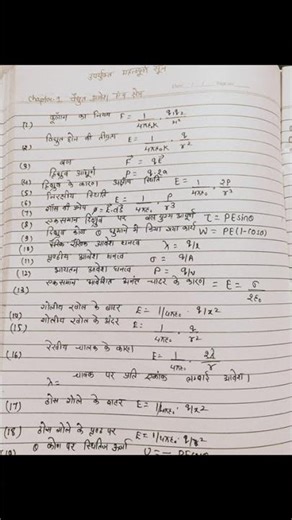 उपयुक्त महत्वपूर्ण सूत्र
Chapter-1 वैद्युत आवेश एवं क्षेत्र
(1) कूलाम का नियम F = 1/4πε₀K · q₁q₂/r²
(2) विद्युत क्षेत्र की तीव्रता E = 1/4πε₀K · q/r²
(3) बल F = qE
(4) द्विध्रुव आघूर्ण P = q·2a
(5) द्विध्रुव के कारण अक्षीय स्थिति E = 1/4πε₀ · 2P/r³
(6) निरक्षीय स्थिति E = 1/4πε₀ · P/r³
(7)
(8) एकसमान द्विध्रुव पर बल युग्म आघूर्ण τ = PE sinθ
(9) द्विध्रुव को θ घुमाने में किया गया कार्य W = PE(1-cosθ)
(10) रैखिक आवेश घनत्व λ = q/l
(11) पृष्ठीय आवेश घनत्व σ = q/A
(12) आयतन आवेश घनत्व P = q/v
(13) अनंत चादर के कारण = E = σ/2ε₀
(14) गोलीय खोल के बाहर E = 1/4πε₀ · q/r²
(15) गोलीय खोल के अंदर E = 1/4πε₀ · q/r²
(16) रेखीय चालक के कारण E = 1/4πε₀ · 2λ/r
λ = चालक पर प्रति एकांक लम्बाई आवेश।
(17) ठोस गोले के बाहर E = 1/4πε₀ · q/r²
(18) ठोस गोले के पृष्ठ पर E = 1/4πε₀ · q/r²
θ कोण पर स्थितिज ऊर्जा U = -